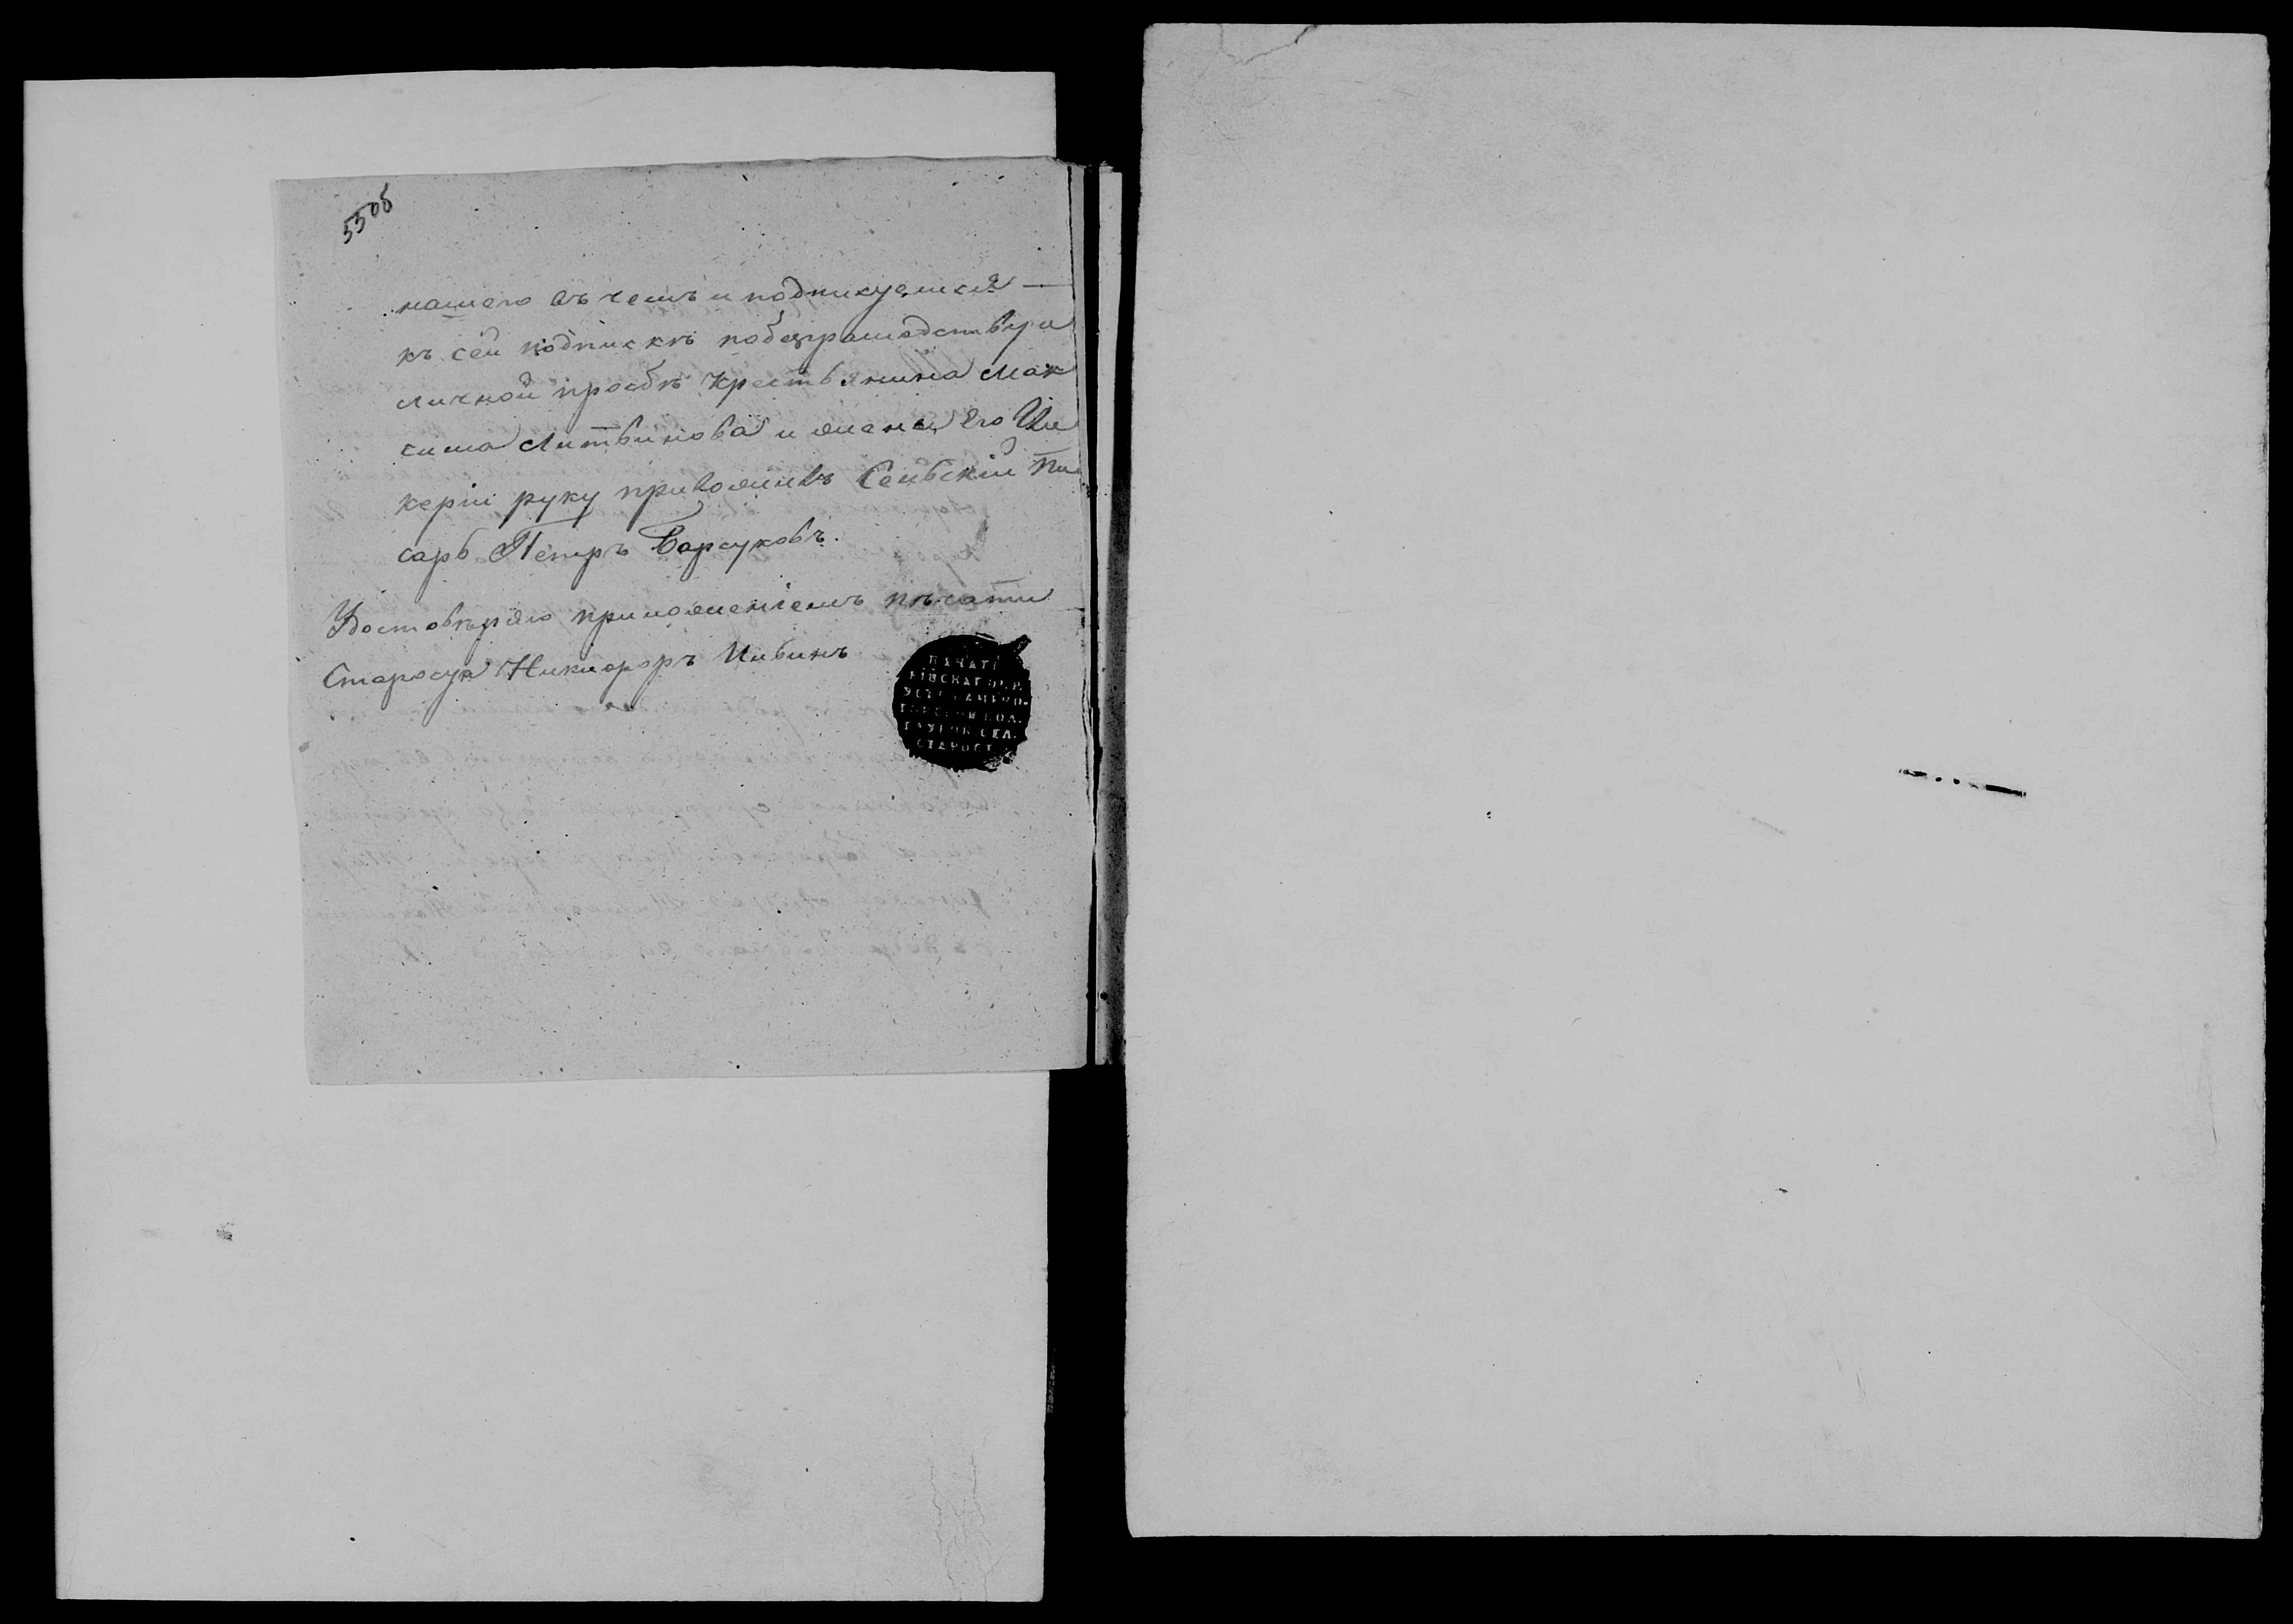 55об
нашего въ чемъ и подписуемся —
къ сей подпискѣ побезграмодству и
личной прозбѣ крестьянина Мак
сима Литвинова и жены его Ли
керіи руку приложилъ Сельскій Пи
сарь Петръ Барсуковъ.
Удостовѣряю приложеніемъ пѣчати
Староста Никифоръ Ививинъ
ПЕЧАТЬ
СТАРОСТ